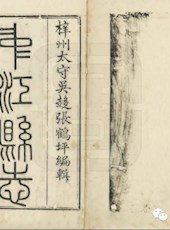 梓州太守吳趨張鶴坪編輯
中江縣志